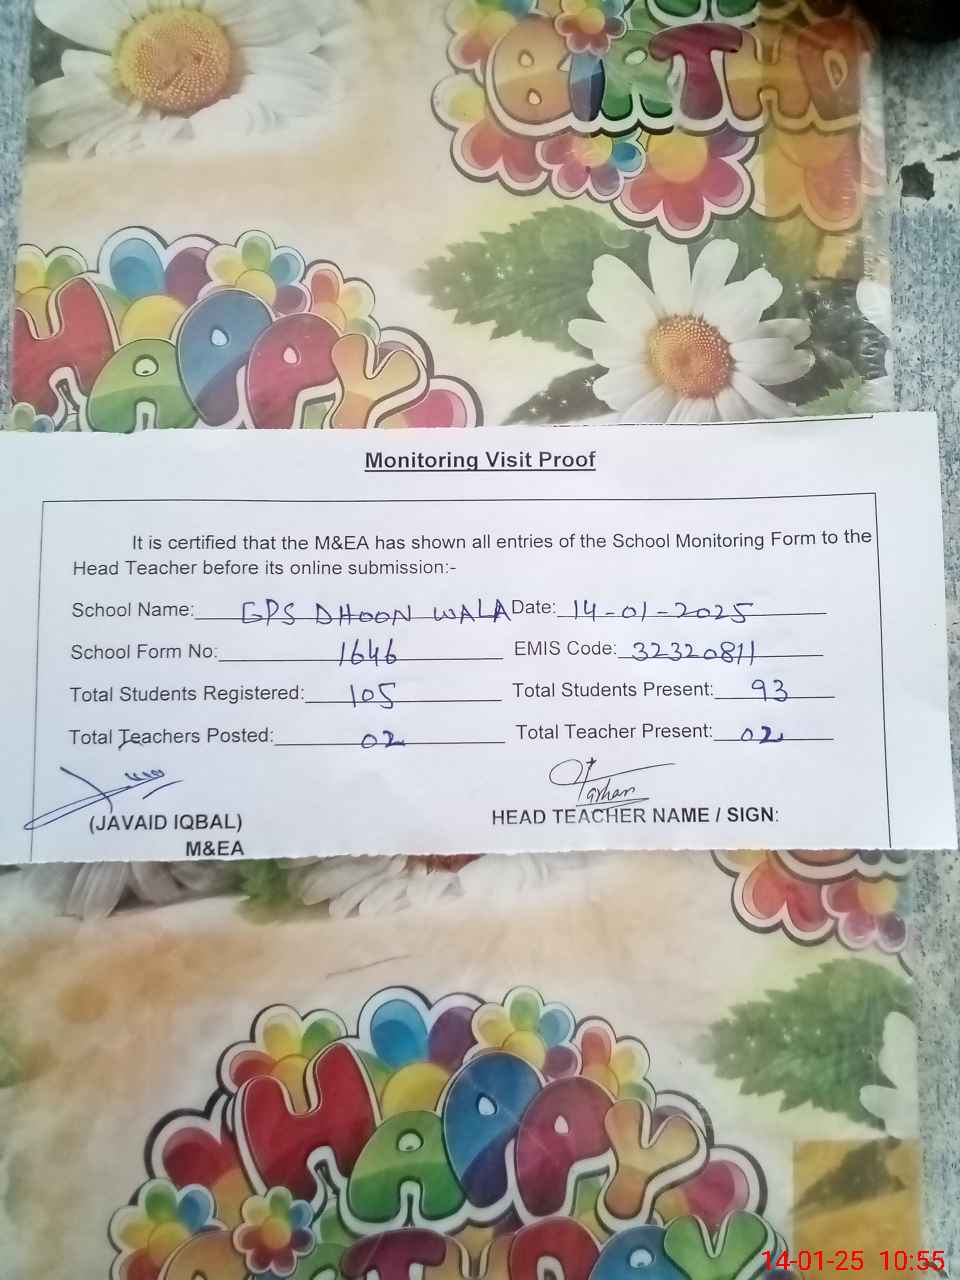 BIRTHD
HAPPY
Monitoring Visit Proof
It is certified that the M&EA has shown all entries of the School Monitoring Form to the
Head Teacher before its online submission:-
School Name: GPS DHOON WALA Date: 14-01-2025
School Form No: 1646 EMIS Code: 32320811
Total Students Registered: 105 Total Students Present: 93
Total Teachers Posted: 02 Total Teacher Present: 02
Farhan
(JAVAID IQBAL) HEAD TEACHER NAME / SIGN:
M&EA
HAPPY
BIRTHDAY
14-01-25 10:55